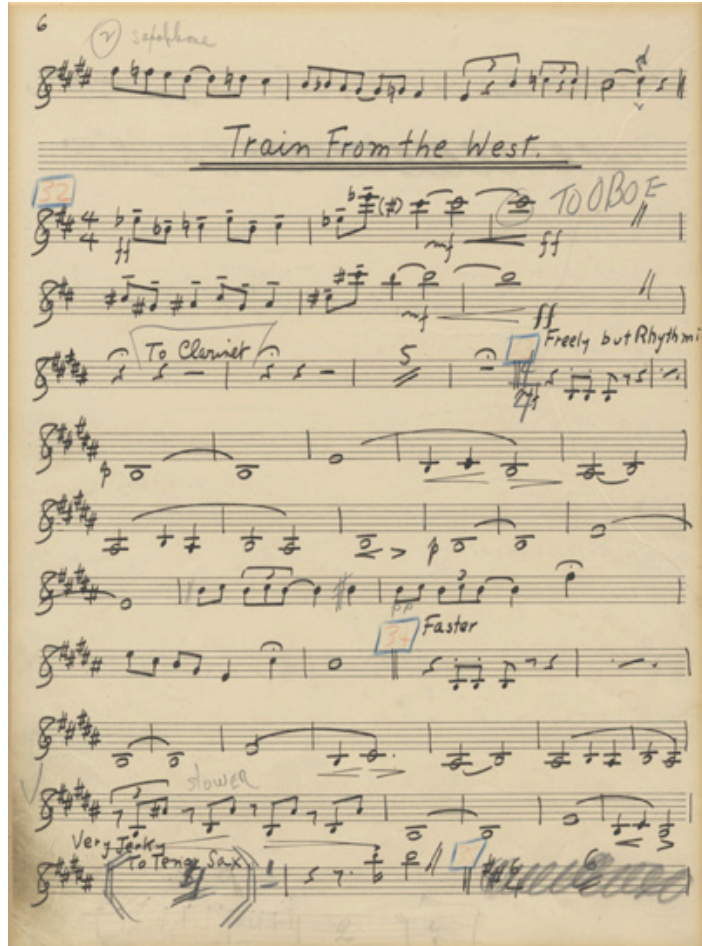 6
2 saxophone
Train From the West.
32
4
4
ff
mf
ff
TO OBOE
mf
ff
To Clarinet
5
Freely but Rhythmi
p
p
3
3
pp
34
Faster
slower
Very Jerky
To Tenor Sax